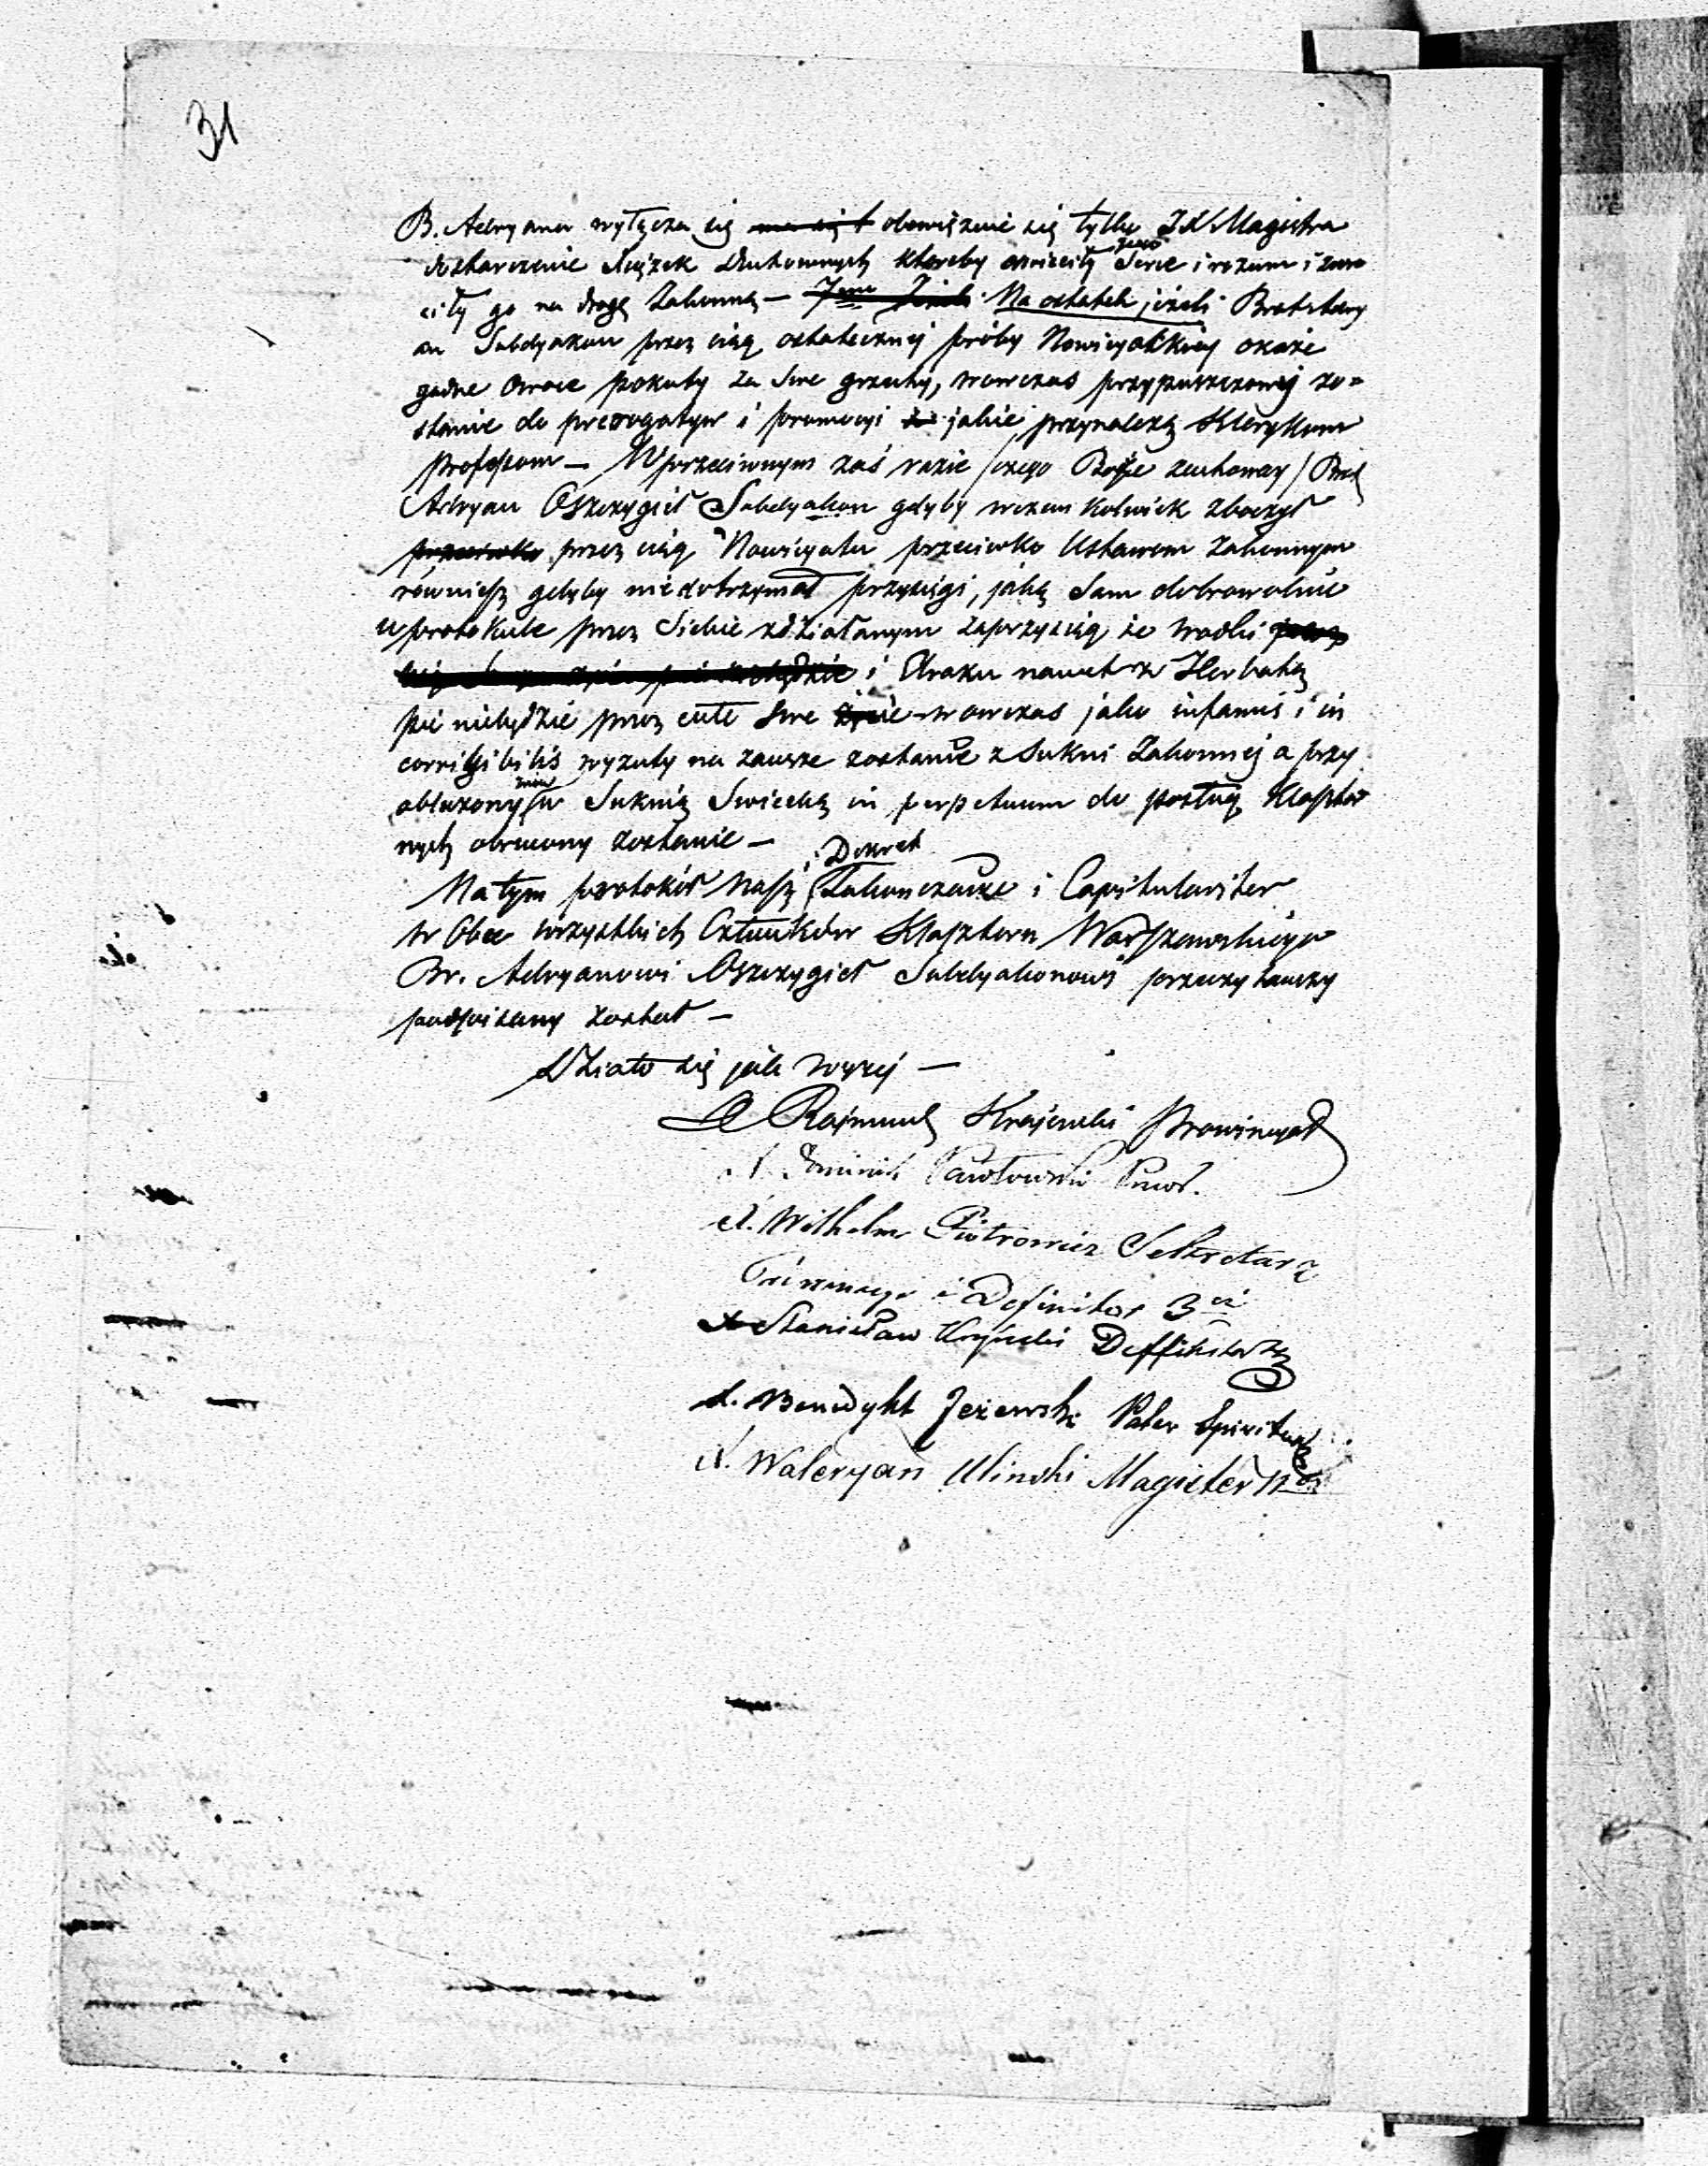 31
B. Adryana wyłącza się obowiązuie się tylko JX Magistra
dostarczenie Książek Duchownych któreby oświeciły Jego Serce i rozum i zwró
ciły go na drogę Zakonną — 7me Jeżeli Na ostatek jeżeli Brat Adry
an Subdyakon przez ciąg ostatecznej próby Nowicyackiej okaże
godne owoce pokuty za Swe grzechy, wowczas przypuszczonej zo=
stanie do prerogatyw i promocyi jakie przynależą Klerykom
professom — W przeciwnym zaś razie /czego Boże zachoway/ Brat
Adryan Oszczygieł Subdyakon gdyby wczem kolwiek zboczył
przeciwko przez ciąg Nowicyatu przeciwko Ustawom Zakonnym
równiesz gdyby niedotrzymał przysięgi, jaką Sam dobrowolnie
w protokule przez Siebie zdziałanym zaprzysiągł że wodki
i Araku nawet z Herbatą
pić niebędzie przez całe Swe życie — wowczas jako infamis i in
corrigibilis wyzuty na zawsze zostanie z Sukni Zakonnej a przy
obleczony w Suknią Swiecką in perpetuum do posług Klasztor
nych obrucony zostanie —
Na tym protokół Nasz i Dekret Zakonczawsze i Capitulariter
w Obec wszystkich Członków Klasztoru Warszawskiego
Br. Adryanowi Oszczygieł Subdyakonowi przeczytawszy
podpisany został —
Działo się jak wyżej —
X Rajmund Krajewski Prowincyał
X Dominik Pawłowski
X. Wilhelm Piotrowicz Sekretarz
Prowincyi i Definitor 3ci
X Stanisław Deffinitor
X. Benedykt Jeżewski Pater Spiritualis
X. Waleryan Ulinski Magister